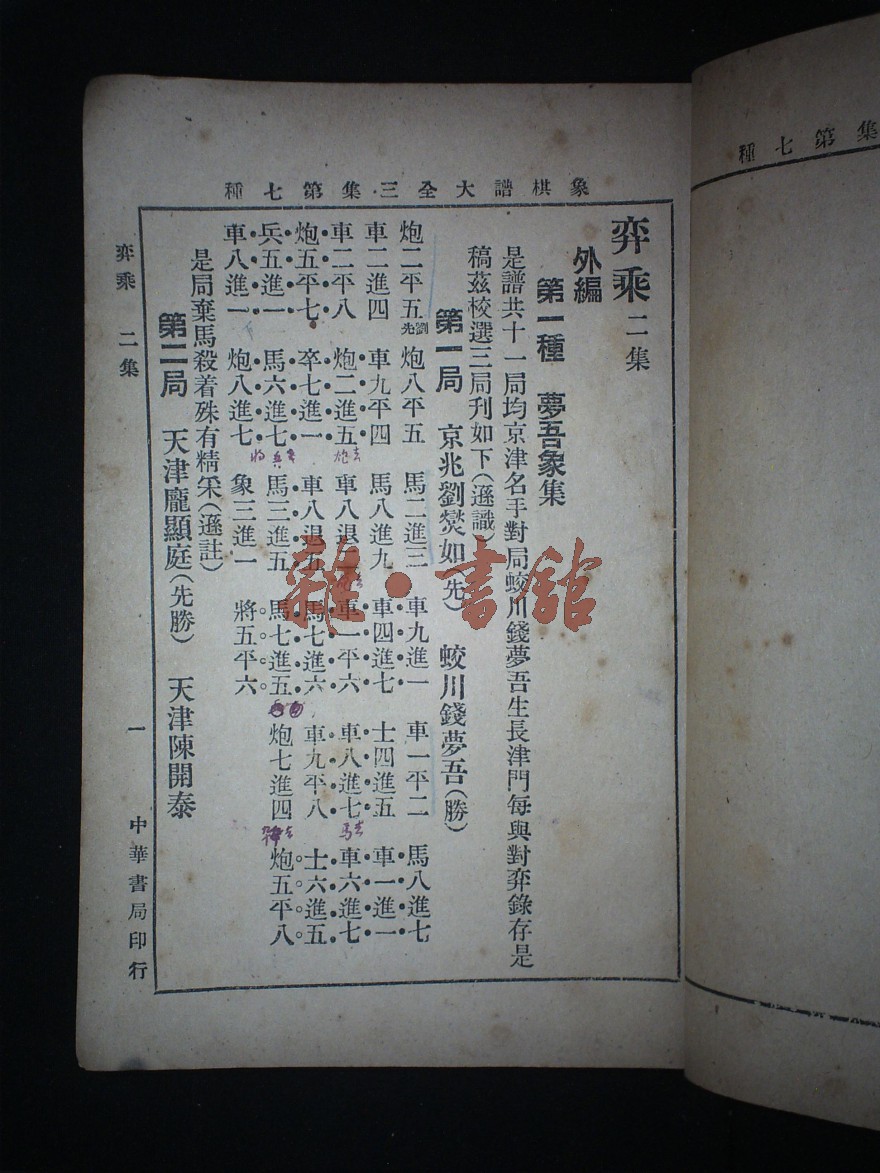 象棋譜大全三集第七種
弈乘 二集
外編
第一種 夢吾象集
是譜共十一局均京津名手對局蛟川錢夢吾生長津門每與對弈錄存是
稿茲校選三局刊如下(遜識)
第一局 京兆劉爕如(先) 蛟川錢夢吾(勝)
炮二平五 劉先 炮八平五 馬二進三 車九進一 車一平二 馬八進七
車二進四 車九平四 馬八進九 車四進七 士四進五 車一進一
車二平八 炮二進五 車八退 車一平六 車八進七 車六進七
炮五平七 卒七進一 車八退五 馬七進六 車九平八 士六進五
兵五進一 馬六進七 馬三進五 馬七進五 炮七進四 炮五平八
車八進一 炮八進七 象三進一 將五平六
是局棄馬殺着殊有精采(遜註)
第二局 天津龐顯庭(先勝) 天津陳開泰
弈乘 二集
一
中華書局印行
集第七種
雜·書館